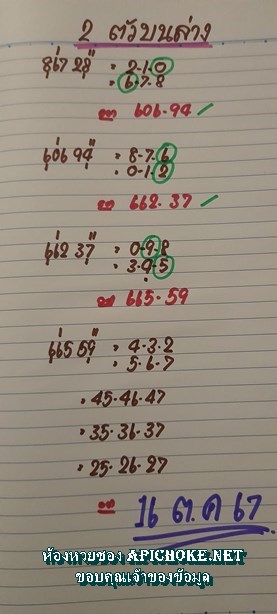 2 ตัวบนล่าง
867 28 = 2-1-0
= 6-7-8
606-94 ✓
606 94 = 8-7-6
= 0-1-2
662-37 ✓
662 37 = 0-9-8
= 3-4-5
665-59
665 59 = 4-3-2
= 5-6-7
= 45-46-47
= 35-36-37
= 25-26-27
16 ต.ค 67
ห้องหวยซอง APICHOKE.NET
ขอบคุณเจ้าของข้อมูล